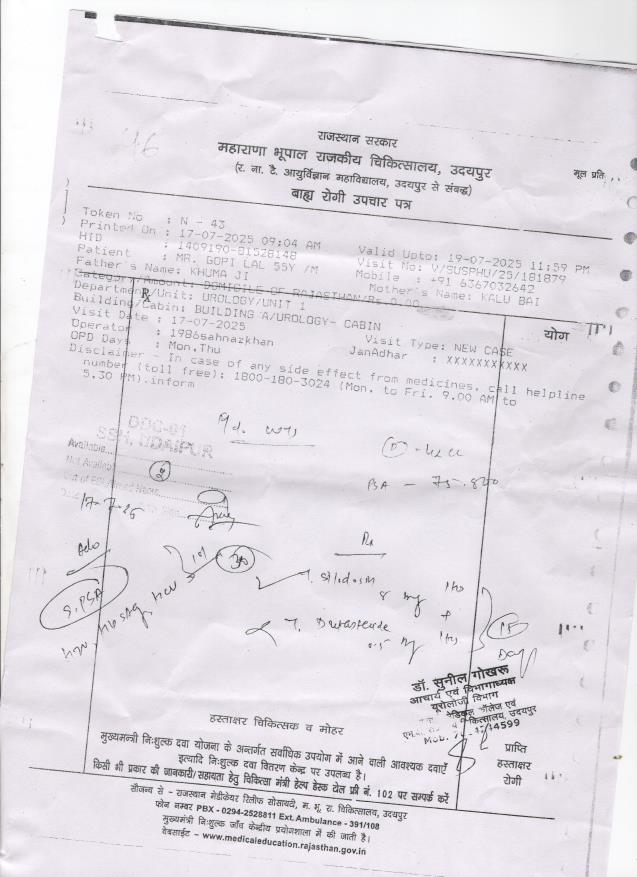 राजस्थान सरकार
महाराणा भूपाल राजकीय चिकित्सालय, उदयपुर
(र. ना. टै. आयुर्विज्ञान महाविद्यालय, उदयपुर से संबद्ध)
मूल प्रति
बाह्य रोगी उपचार पत्र
Token No : N - 43
Printed On : 17-07-2025 09:04 AM
Valid Upto: 19-07-2025 11:59 PM
HID : 1409190-81528148
Visit No: V/SUSPHU/25/181879
Patient : MR. GOPI LAL 55Y /M
Mobile : +91 6367032642
Father's Name: KHUMA JI
Mother's Name: KALU BAI
Category/Amount: DOMICILE OF RAJASTHAN/Rs.0.00
Department/Unit: UROLOGY/UNIT 1
Building/Cabin: BUILDING A/UROLOGY- CABIN
Visit Date : 17-07-2025
Visit Type: NEW CASE
Operator : 1986sahnazkhan
JanAdhar : XXXXXXXXXXX
OPD Days : Mon,Thu
योग
Disclaimer - In case of any side effect from medicines, call helpline
number (toll free): 1800-180-3024 (Mon. to Fri. 9.00 AM to
5.30 PM).inform
DDC-01
SSH, UDAIPUR
Available
Not Available
17-7-25
Rx
Adv
S. PSA
T. Silodosin
8 mg
+
T. Dutasteride
0.5 mg
15
Day
डॉ. सुनील गोखरू
आचार्य एवं विभागाध्यक्ष
यूरोलोजी विभाग
मेडिकल कॉलेज एवं
चिकित्सालय, उदयपुर
हस्ताक्षर चिकित्सक व मोहर
प्राप्ति
हस्ताक्षर
रोगी
मुख्यमन्त्री निःशुल्क दवा योजना के अन्तर्गत सर्वाधिक उपयोग में आने वाली आवश्यक दवाऐं
इत्यादि निःशुल्क दवा वितरण केन्द्र पर उपलब्ध है।
किसी भी प्रकार की जानकारी/सहायता हेतु चिकित्सा मंत्री हेल्प डेस्क टोल फ्री नं. 102 पर सम्पर्क करें
सौजन्य से - राजस्थान मेडीकेयर रिलीफ सोसायटी, म. भू. रा. चिकित्सालय, उदयपुर
फोन नम्बर PBX - 0294-2528811 Ext. Ambulance - 391/108
मुख्यमन्त्री निःशुल्क जाँच केन्द्रीय प्रयोगशाला में की जाती है।
वेबसाईट - www.medicaleducation.rajasthan.gov.in